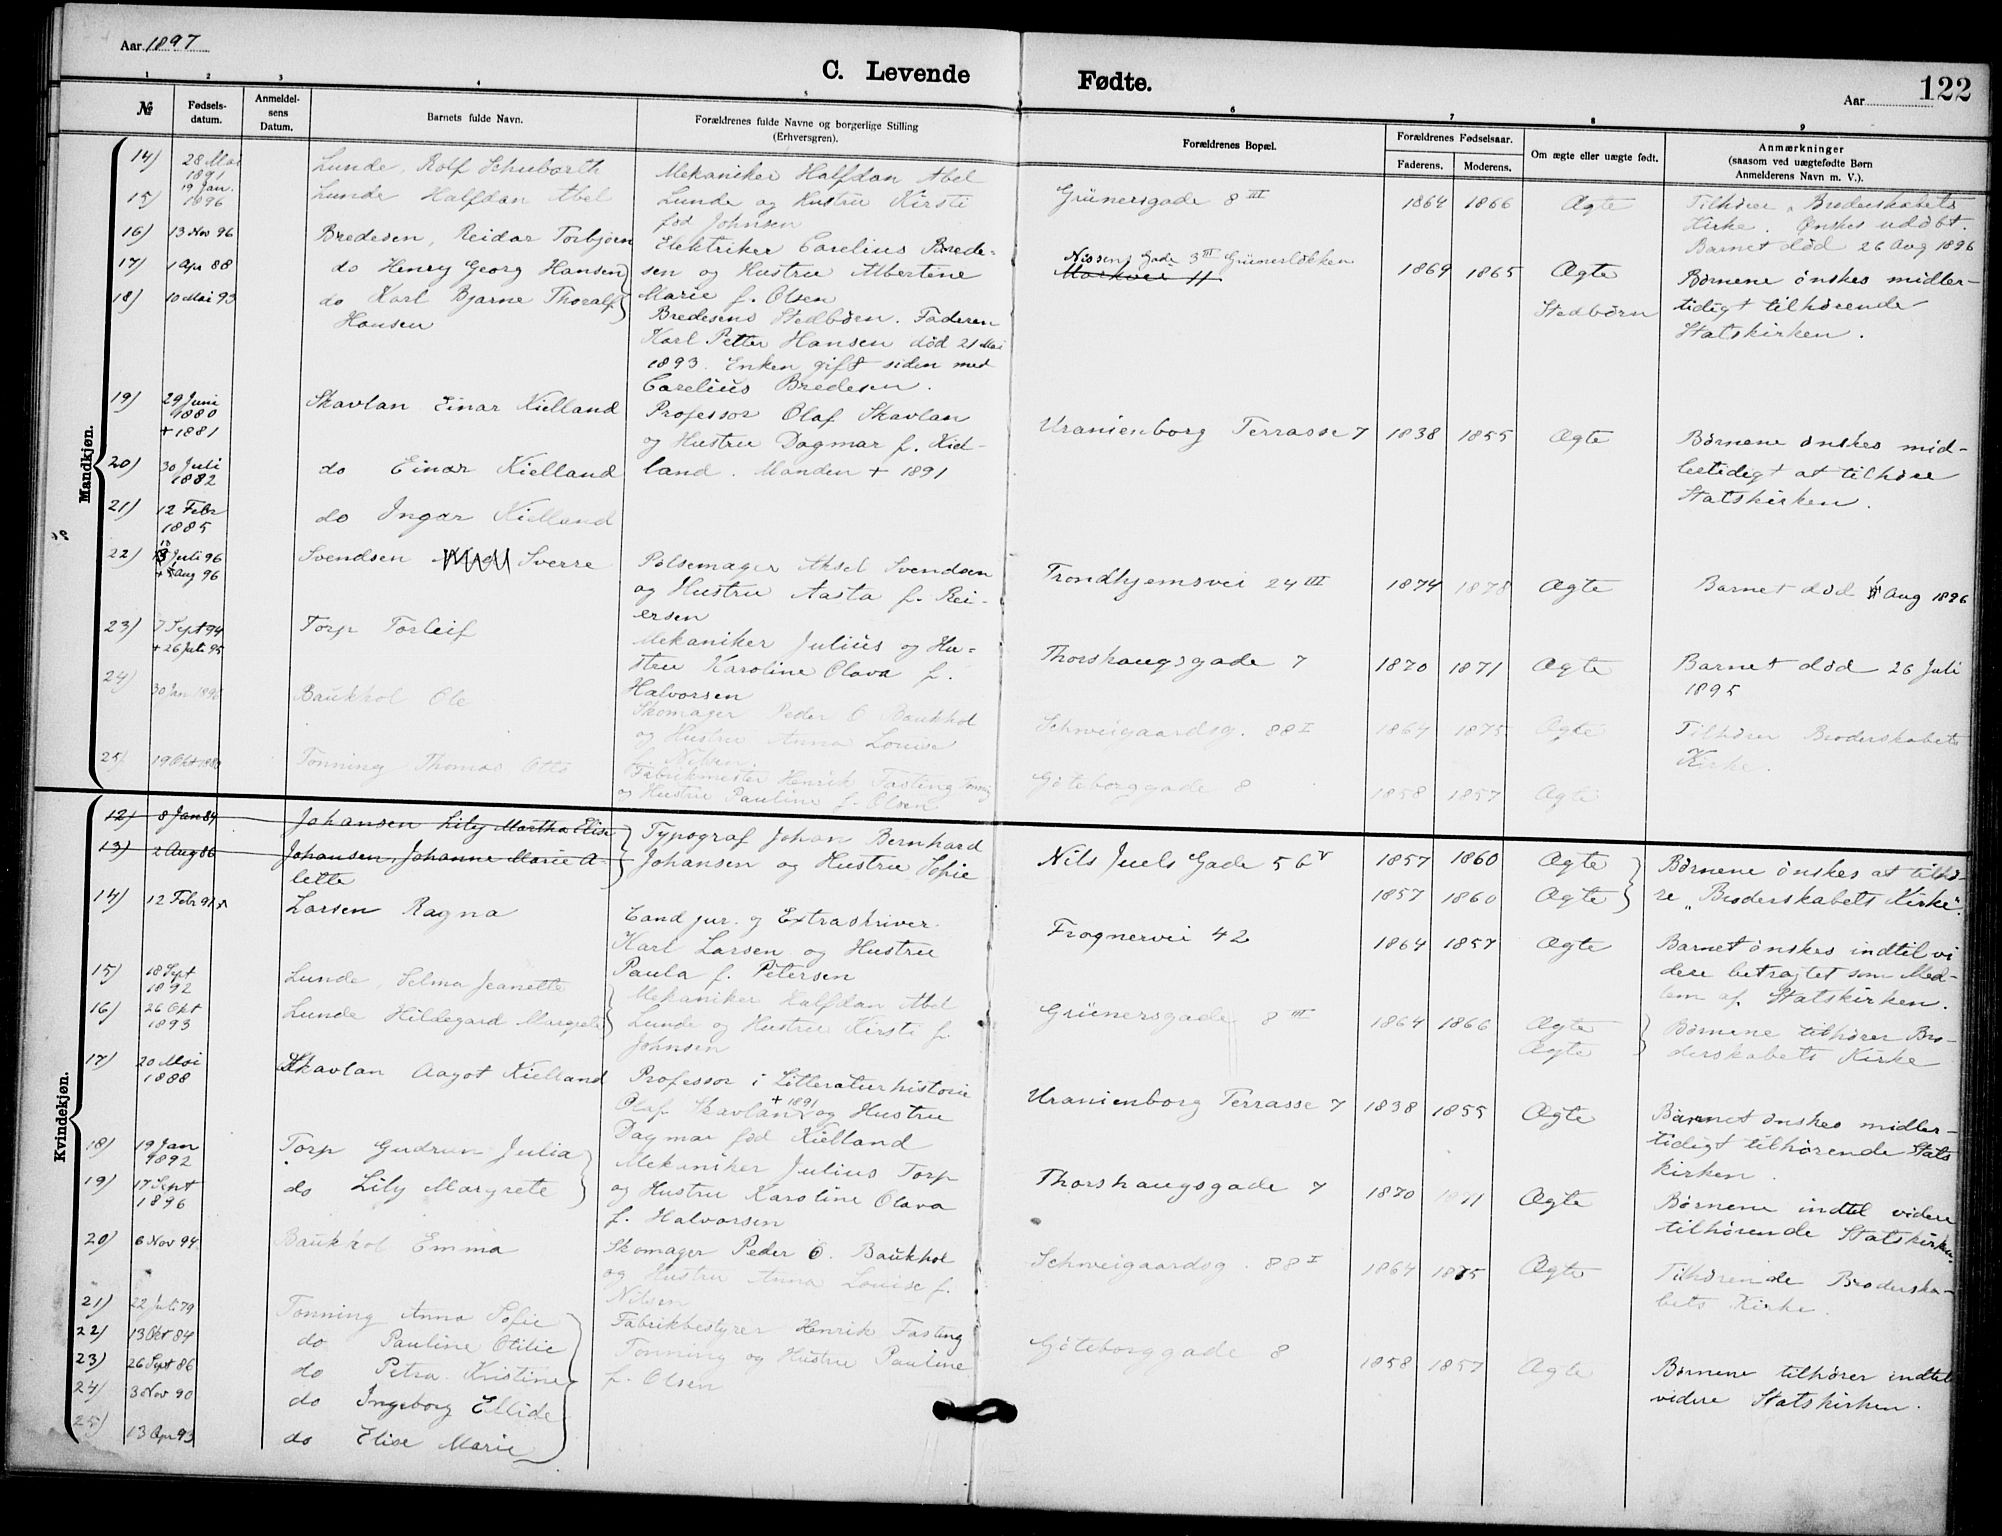 Aar 1897
C. Levende Fødte.
Aar 122
1 2 3 4 5 6 7 8 9
№
Fødsels-datum.
Anmeldel-sens Datum.
Barnets fulde Navn.
Forældrenes fulde Navne og borgerlige Stilling (Erhversgren).
Forældrenes Bopæl.
Forældrenes Fødselsaar.
Faderens.
Moderens.
Om ægte eller uægte født.
Anmærkninger (saasom ved uægtefødte Børn Anmelderens Navn m. V.).
Mandkjøn.
14) 28 Mai 1891 Lunde, Rolf Schuborth
15) 19 Jan. 1896 Lunde Halfdan Abel
Mekaniker Halfdan Abel
Lunde og Hustru Kirsti
fød Johnsen
Grünersgade 8 III 1864 1866 Ægte
Tilhører "Broderskabets
Kirke. Ønskes udøbt.
Barnet død 26 Aug 1896
16) 13 Nov 96 Bredesen, Reidar Torbjørn
17) 1 Apr 88 do Henry Georg Hansen
18) 10 Mai 93 do Karl Bjarne Thoralf
Hansen
Elektriker Carelius Brede-
sen og Hustru Albertine
Marie f. Olsen
Bredesens Stedbørn. Faderen
Karl Petter Hansen død 21 Mai
1893. Enken gift siden med
Carelius Bredesen.
Nissens Gade 3 III Grünerløkken
Markvei 11
1869 1865 Ægte
Stedbørn
Børnene ønskes midler-
tidigt tilhørende
Statskirken.
19) 29 Juni 1880 + 1881 Skavlan Einar Kielland
20) 30 Juli 1882 do Einar Kielland
21) 12 Febr 1885 do Ingar Kielland
Professor Olaf Skavlan
og Hustru Dagmar f. Kiel-
land. Manden + 1891
Uranienborg Terrasse 7 1838 1855 Ægte
Børnene ønskes mid-
lertidigt at tilhøre
Statskirken.
22) 13 Juli 96 + Aug 96 Svendsen Sverre
Pølsemager Aksel Svendsen
og Hustru Aasta f. Rei-
ersen
Trondhjemsvei 24 III 1874 1878 Ægte
Barnet død Aug 1896
23) 7 Sept 94 + 26 Juli 95 Torp Torleif
Mekaniker Julius og Hu-
stru Karoline Olava f.
Halvorsen
Thorshaugsgade 7 1870 1871 Ægte
Barnet død 26 Juli
1895
24) 30 Jan 1896 Baukhol Ole
Skomager Peder O Baukhol
og Hustru Anna Louise
f. Nilsen.
Schweigaardsg. 88 I 1864 1875 Ægte
Tilhører Broderskabets
Kirke.
25) 19 Okt 1880 Tonning Thomas Otto
Fabrikmester Henrik Fasting Tonning
og Hustru Pauline f. Olsen
Göteborggade 8 1858 1857 Ægte
Kvindekjøn.
12) 8 Jan 84 Johansen Lily Martha Elise
13) 2 Aug 86 Johansen, Johanne Marie A-
lette
Typograf Johan Bernhard
Johansen og Hustru Sofie
Nils Juels Gade 56 V 1857 1860 Ægte
1857 1860 Ægte
Børnene ønskes at tilhø-
re "Broderskabets Kirke".
14) 12 Febr 91 Larsen Ragna
Cand jur. og Extraskriver
Karl Larsen og Hustru
Paula f. Petersen
Frognervei 42 1864 1857 Ægte
Barnet ønskes indtil vi
dere betragtet som Med-
lem af Statskirken.
15) 18 Sept 1892 Lunde, Selma Jeanette
16) 26 Okt 1893 Lunde Hildegard Margrete
Mekaniker Halfdan Abel
Lunde og Hustru Kirsti f.
Johnsen
Grünersgade 8 III 1864 1866 Ægte
Ægte
Børnene tilhører Bro-
derskabets Kirke
17) 20 Mai 1888 Skavlan Aagot Kielland
Professor i Litteraturhistorie
Olaf Skavlan + 1891 og Hustru
Dagmar fød Kielland
Uranienborg Terrasse 7 1838 1855 Ægte
Barnet ønskes midler-
tidigt tilhørende Stats
kirken.
18) 19 Jan 1892 Torp Gudrun Julia
19) 17 Sept 1896 do Lily Margrete
Mekaniker Julius Torp
og Hustru Karoline Olava
f. Halvorsen
Thorshaugsgade 7 1870 Ægte
Børnene indtil videre
tilhørende Statskirken
20) 6 Nov 94 Baukhol Emma
Skomager Peder O. Baukhol
og Hustru Anna Louise f.
Nilsen
Schweigaardsg. 88 I 1864 1875 Ægte
Tilhørende Broderska-
bets Kirke.
21) 22 Juli 79 Tonning Anna Sofie
22) 13 Okt 84 do Pauline Otilie
23) 26 Sept 86 do Petra Kristine
24) 3 Nov 90 do Ingeborg Ellide
25) 13 Apr 93 do Elise Marie
Fabrikbestyrer Henrik Fasting
Tonning og Hustru Pauline
f. Olsen
Göteborggade 8 1858 1857 Ægte
Børnene tilhører indtil
videre Statskirken.